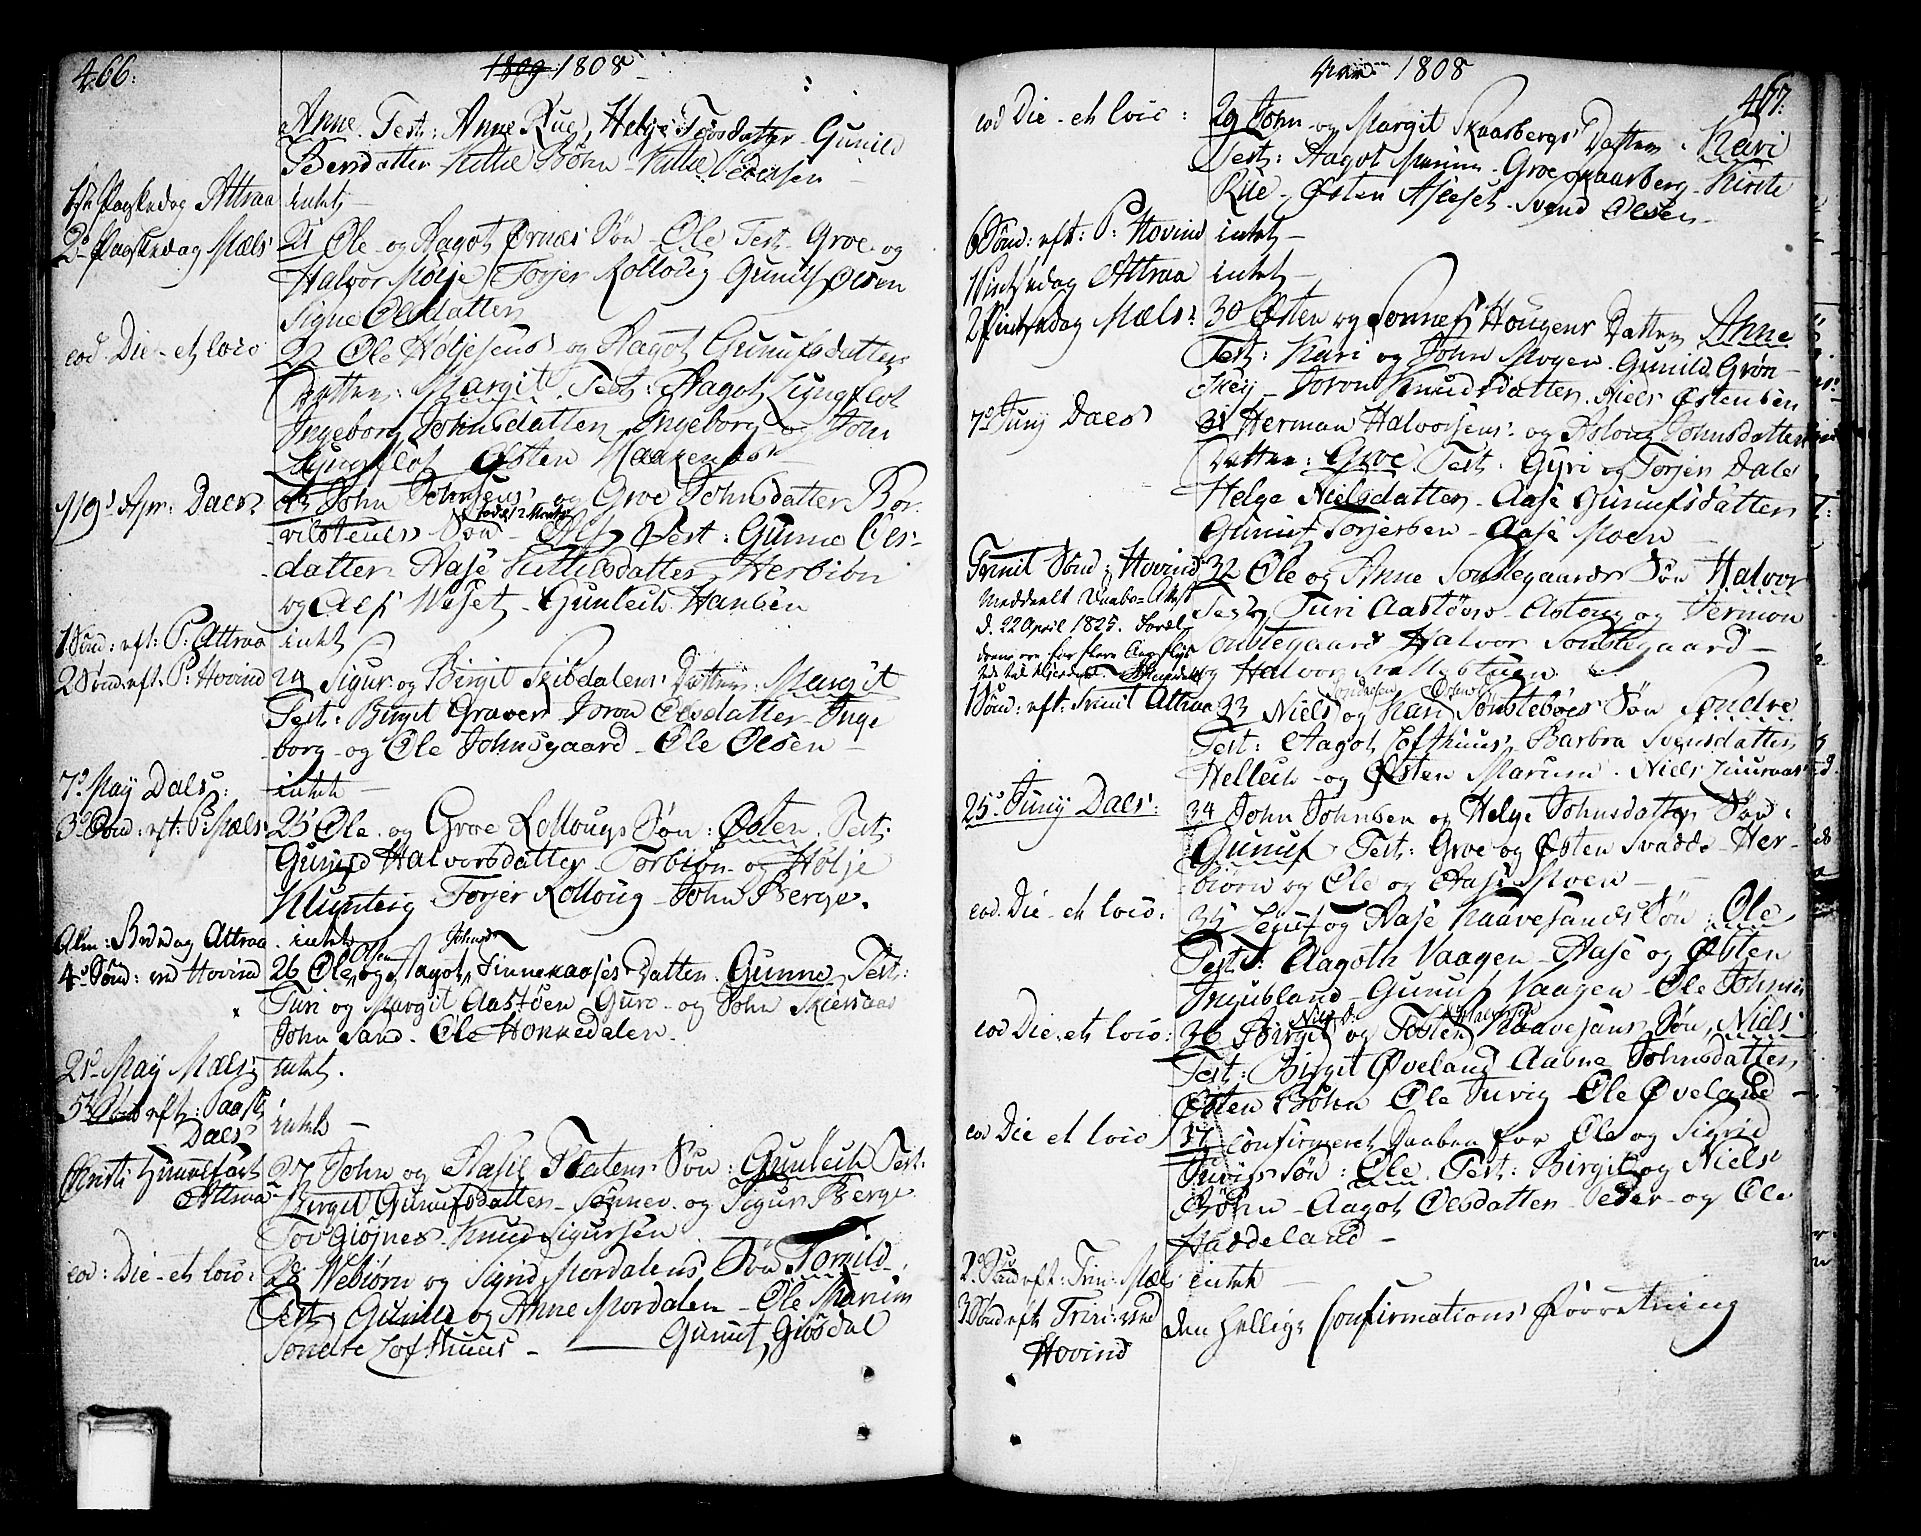 466.
1809 1808
Anne. Test: Anne Rue, Helje Torsdatter - Gunild
Bersdatter - Kittil Bøhn - Kittil Pedersen
1st Paaskedag Attraa intet -
2d Paaskedag Mæls 21 Ole og Aagot Ørnæs Søn - Ole Test - Groe og
Halvor Mølje Torjer Rolloug Gunuf Olsen
Signe Olsdatter
eod Die - et loco 22 Ole Høljesens og Aagot Gunufsdatters
Datter: Margit. Test: Aagot Lyngflot
Ingeborg Johnsdatter Ingeborg og John
Lyngflot Østen Haakenæs
d 19d Apr: Dales 23 John Johnsens og Groe Johnsdatter Bor-
vilstuens Søn - Alf Test: Gunne Ols-
datter Aase Kittilsdatter Herbiøn
og Alf Weset - Gunleik Hansen
1 Sønd: eft: P: Attraa intet
2 Sønd: eft: P: Hovind 24 Sigur og Birgit Skibdalens Datter: Margit
Test: Birgit Graver Joron Olsdatter - Inge
borg - og Ole Johnsgaard - Ole Olsen -
7d May Dals: intet -
3d Sønd: eft: P: Mæls: 25 Ole og Groe Rollougs Søn: Østen. Test:
Gunild Halvorsdatter - Torbiøn - og Hølje
Klunteig Torjer Rolloug - John Berge.
Alm: Bededag Attraa. intet
Olsen Johnsd
4d Sønd: ved Hovind 26 Ole og Aagot Finnekaases Datter. Gunne Test:
Turi og Margit Aastøen Guro - og John Skiersaas
John Sand - Ole Honnedalen.
21d May Mæls intet.
5te Sønd eft: Paaske intet -
Dals
Christi Himmelfart 27 John og Aasil Flatens Søn: Gunleik Test:
Attraa Birgit Gunufsdatter - Sønnev og Sigur Berge
Tov Giøsnes. Knud Sigursen
eod: Die - et loco: 28 Vebiørn og Sigrid Mordalens Søn Tormild.
Test Gunild og Anne Mordalen - Ole Marum
Sondre Lofthuus - Gunuf Giøsdal
1808
467.
eod Die - et loco: 29 John og Margit Skaarbergs Datter. Kari
Test: Aagot Marum - Groe Skaarberg - Kirsti
Rue - Østen Asleset - Svend Olsen -
6 Sønd: eft: P: Hovind intet -
1 Pintsedag Attraa intet -
2 Pintsedag Mæls: 30 Østen og Sønnef Hougens Datter Anne
Test: Kari og John Mogen. Gunild Grøn-
skey - Joron Knudsdatter. Niels Østensen
7d Juny Dals 31 Herman Halvorsens og Asloug Johnsdatters
Datter: Groe. Test: Gyri og Torjer Dale
Helge Nielsdatter - Aase Gunufsdatter
Gunuf Torjersen - Aase Moen -
Trinit Sønd: Hovind 32 Ole og Anne Sønstegaards Søn Halvor
Meddeelt Daabs-Attest Test: Turi Aastøen - Asloug og Hermon
d. 22 April 1825. Sønstegaard Halvor Sønstegaard -
og Halvor
1 Sønd: eft: Trinit Attraa 33 Niels og Kari Sønstebøes Søn Sondre
Test: Aagot Lofthuus, Barbra Svensdatter
Helleik - og Østen Marum. Niels Juuraas
25d Juny Dals: 34 John Johnsen og Helge Johnsdatter Søn:
Gunuf Test: Groe og Østen Svadde Her-
biørn og Ole og Aase Moen -
eod. Die - et loco: 35 Leuf og Aase Haavesands Søn: Ole
Test: Aagoth Vaagen - Aase og Østen
Ingulsland - Gunuf Vaagen - Ole Johnsen
eod Die - et loco: 36 Birgit og Tosten Haavesans Søn, Niels
Test: Birgit Øveland Aabne Johnsdatter
Østen Bøhn Ole Turvig - Ole Øveland -
eod Die et loco 37 Confirmeret Daaben for Ole og Sigrid
Turvigs Søn: Ole. Test: Birgit og Niels
Bøhn - Aagot Olsdatter - Peder - og Ole
Haddeland -
2d Sønd eft: Trin: Mæls intet -
3 Sønd eft Trin: ved Den Hellige Confirmations Forretning
Hovind